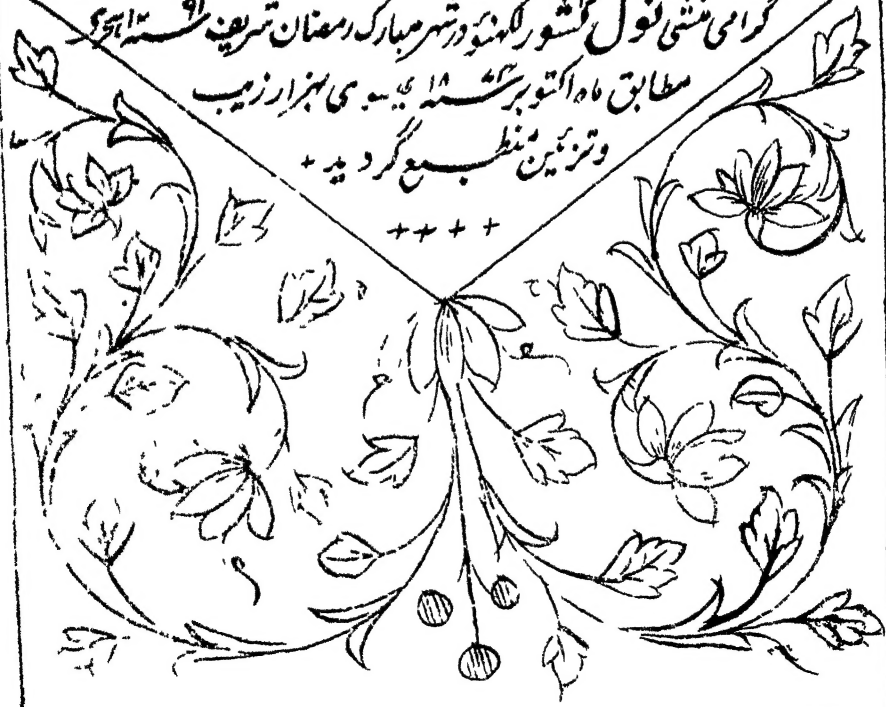 گرامی منشی نول کشور لکهنؤ در شهر مبارک رمضان شریف سنه ۱۲۹۱ هجری
مطابق ماه اکتوبر سنه ۱۸۷۴ عیسوی بهزار زیب
و تزئین منطبع گردید +
++++